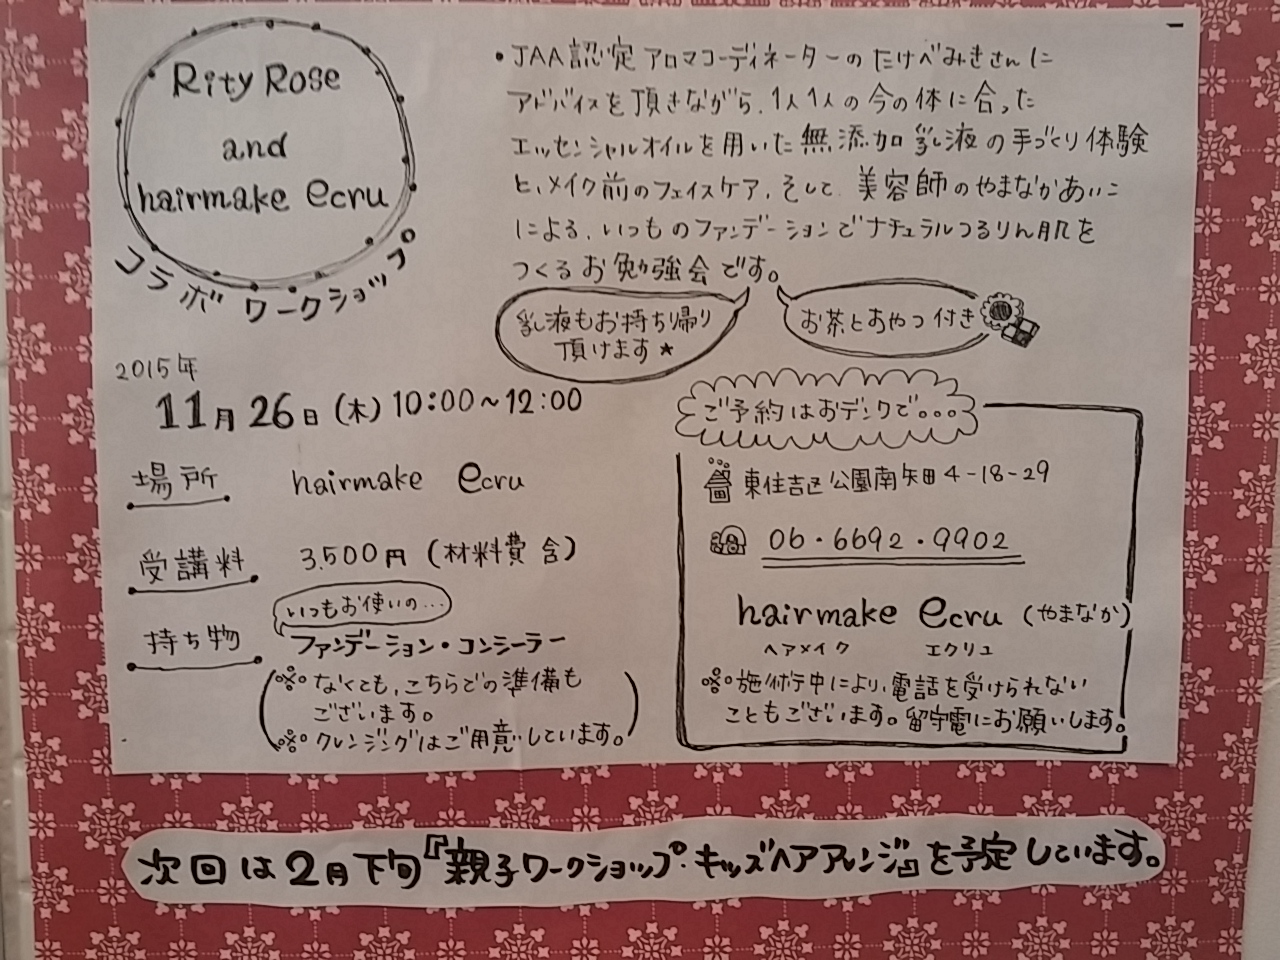 Rity Rose
and
hairmake ecru
コラボワークショップ
・JAA認定アロマコーディネーターのたけべみきさんに
アドバイスを頂きながら、1人1人の今の体に合った
エッセンシャルオイルを用いた無添加乳液の手づくり体験
と、メイク前のフェイスケア、そして、美容師のやまなかあいこ
による、いつものファンデーションでナチュラルつるりん肌を
つくるお勉強会です。
乳液もお持ち帰り
頂けます★
お茶とおやつ付き
2015年
11月26日(木)10:00~12:00
場所 hairmake ecru
受講料 3,500円(材料費含)
持ち物 いつもお使いの…
ファンデーション・コンシーラー
※なくても、こちらでの準備も
ございます。
※クレンジングはご用意しています。
ご予約はおデンワで...
東住吉区公園南矢田4-18-29
06・6692・9902
hairmake ecru(やまなか)
ヘアメイク エクリュ
※施術中により、電話を受けられない
こともございます。留守電にお願いします。
次回は2月下旬『親子ワークショップ・キッズヘアアレンジ』を予定しています。